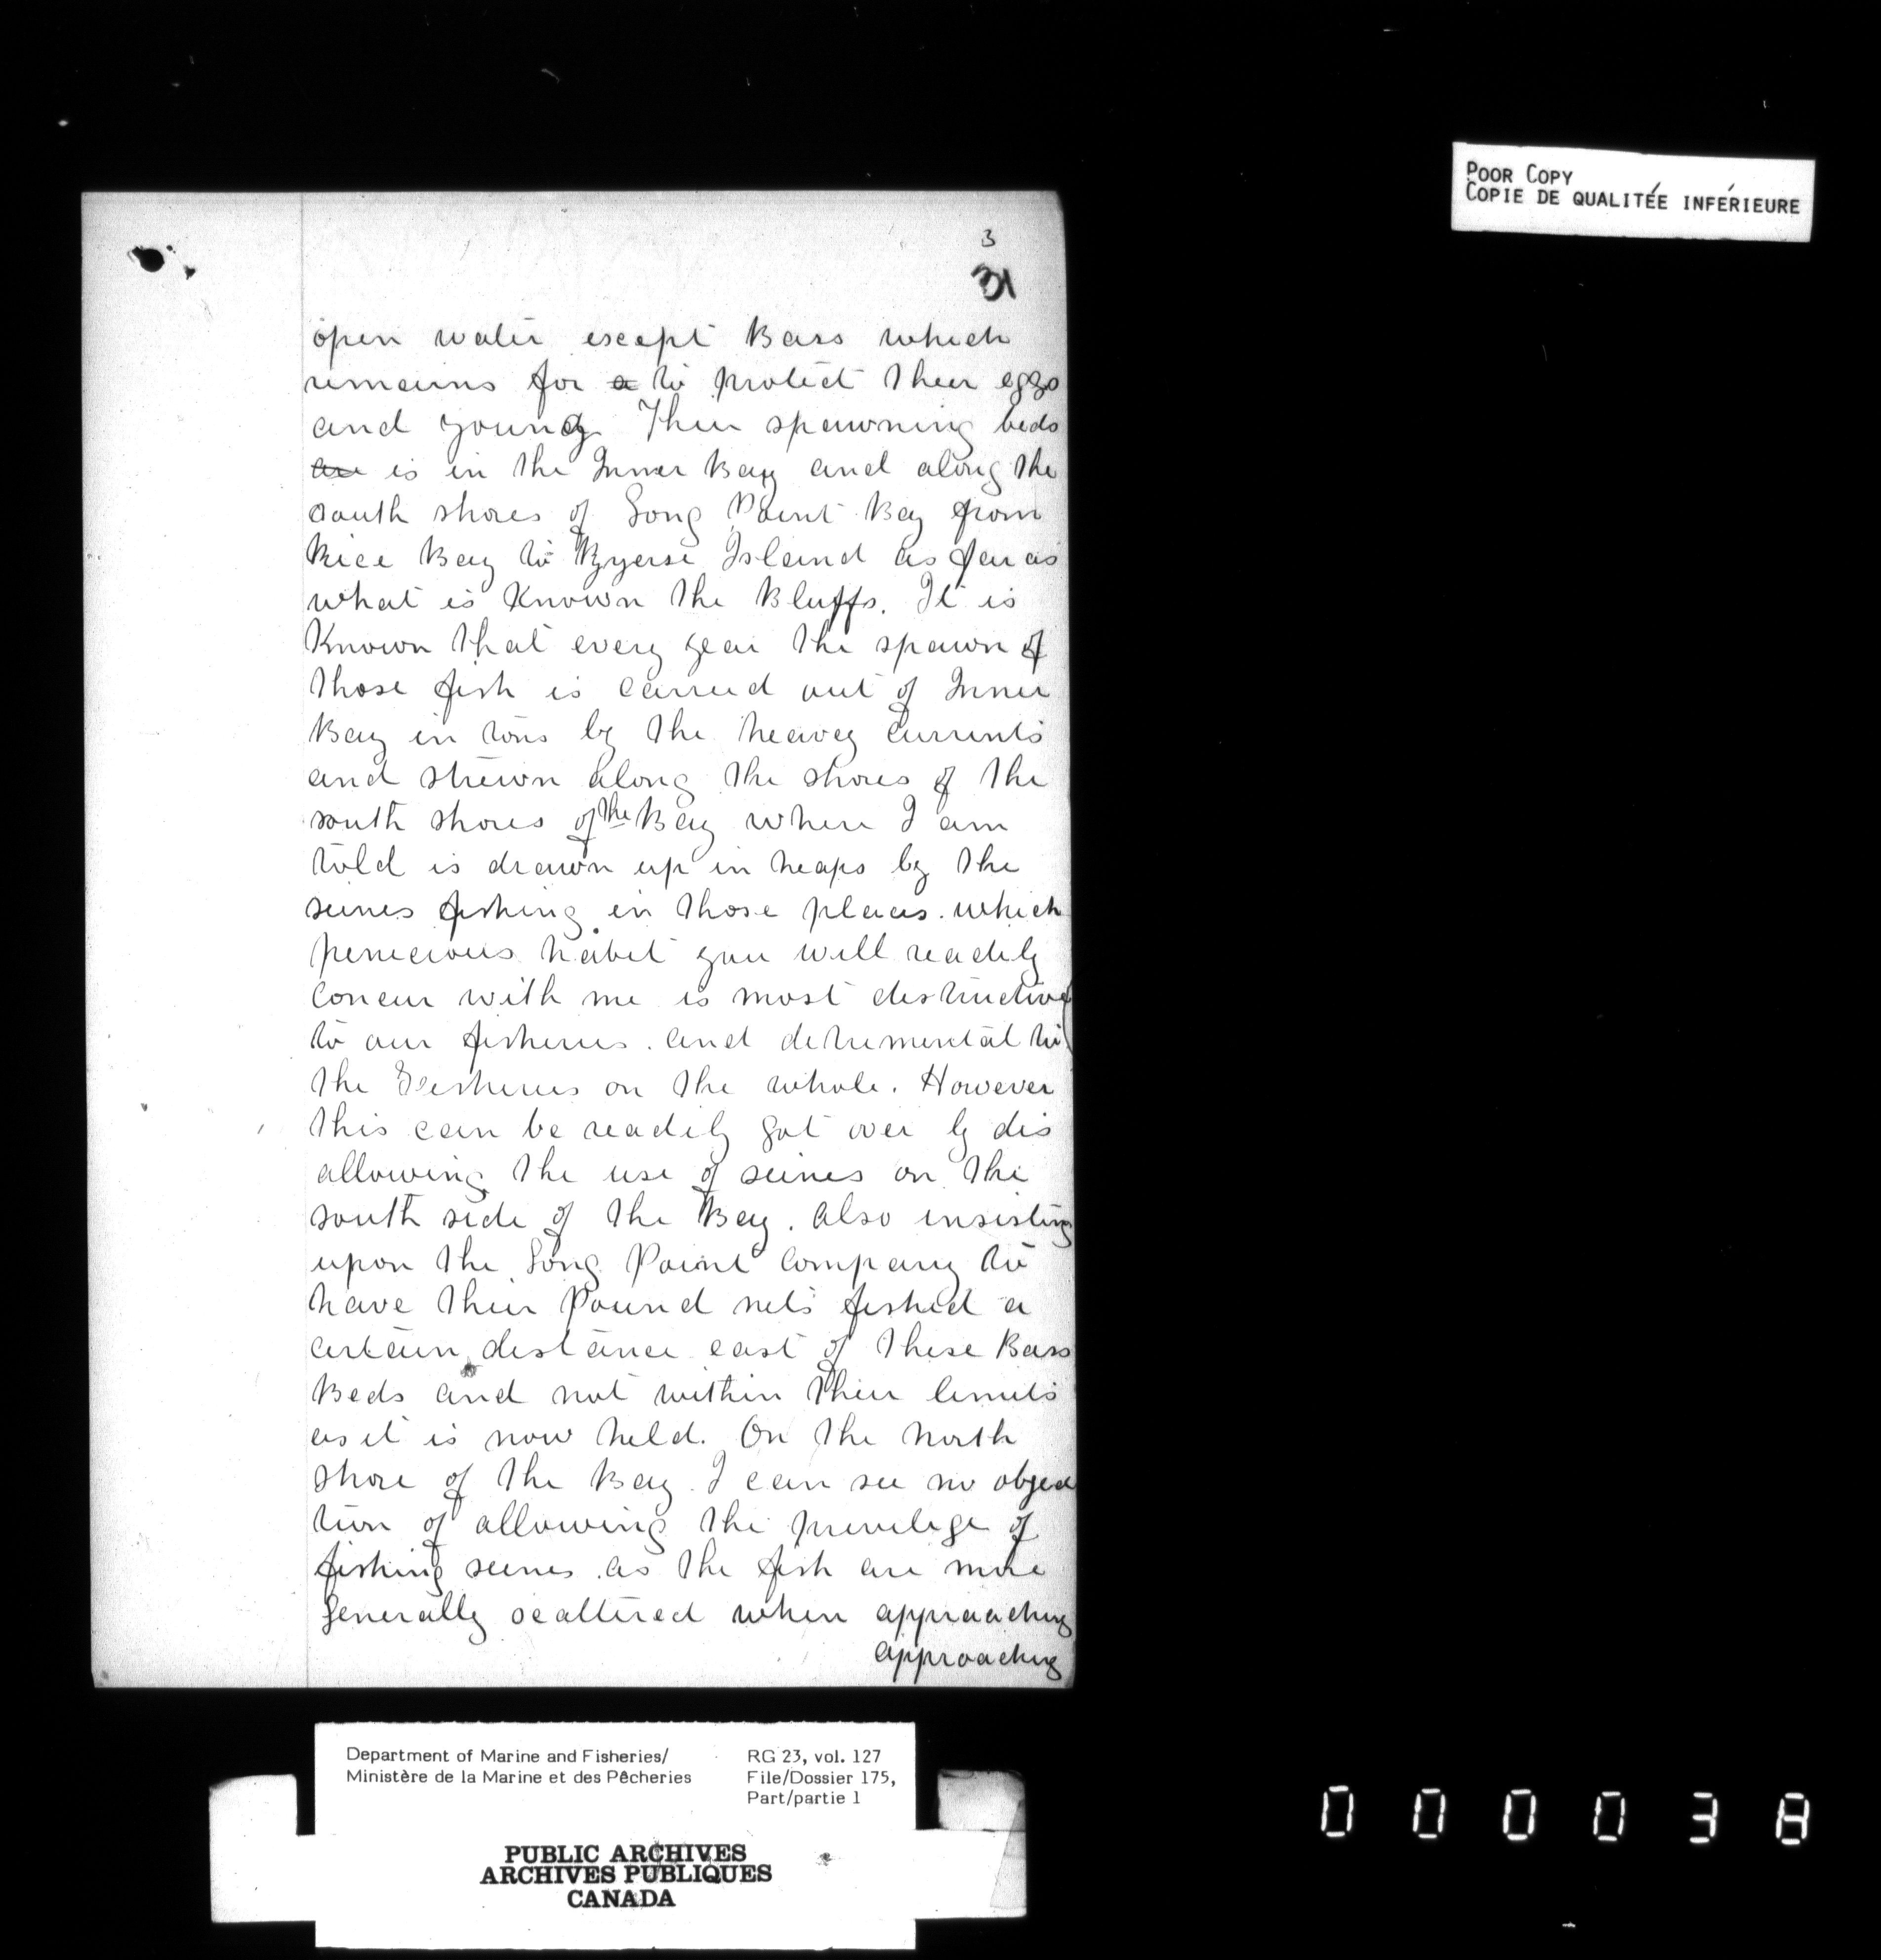 POOR COPY
COPIE DE QUALITÉE INFÉRIEURE
3
31
open water except Bass which
remains for a to protect their eggs
and young. Their spawning beds
are is in the Inner Bay and along the
south shores of Long Point Bay from
Rice Bay to Ryerse Island as far as
what is Known the Bluffs. It is
Known that every year the spawn of
those fish is carried out of Inner
Bay in tons by the heavey currents
and strewn along the shores of the
south shores of the Bay where I am
told is drawn up in heaps by the
seines fishing in those places. which
penicious habit you will readily
concur with me is most destructive
to our fisheries. and detremental to
the Feisheries on the whole. However
this can be readily got over by dis
allowing the use of seines on the
south side of the Bay. Also insisting
upon the Long Point Company to
have their Pound nets fished a
certain distance east of these Bass
Beds and not within their limits
as it is now held. On the North
Shore of the Bay I can see no objec
tion of allowing the privilege of
fishing seines as the fish are more
generally scattered when approaching
approaching
Department of Marine and Fisheries/
Ministère de la Marine et des Pêcheries
RG 23, vol. 127
File/Dossier 175,
Part/partie 1
PUBLIC ARCHIVES
ARCHIVES PUBLIQUES
CANADA
0 0 0 0 3 8